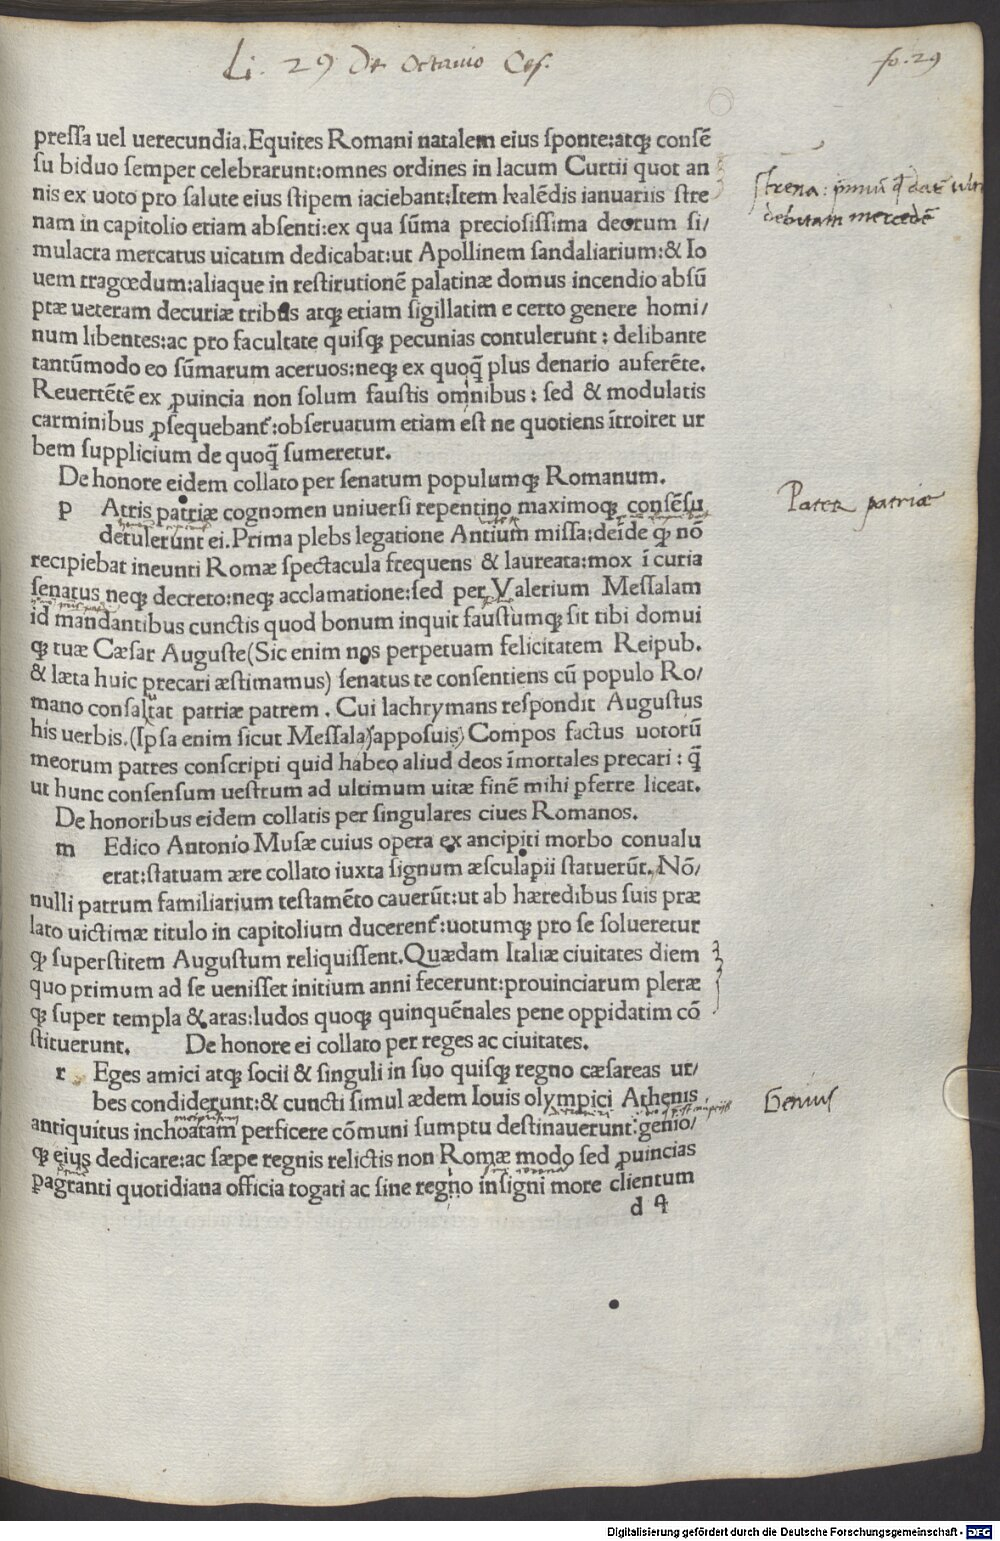 Li. 29 De Octauio Ces.
fo. 29
pressa uel uerecundia.Equites Romani natalem eius sponte:atqꝫ consẽ
su biduo semper celebrarunt:omnes ordines in lacum Curtii quot an
nis ex uoto pro salute eius stipem iaciebant:Item kalẽdis ianuariis stre
nam in capitolio etiam absenti:ex qua sũma preciosissima deorum si/
mulacra mercatus uicatim dedicabat:ut Apollinem sandaliarium:& Io
uem tragœdum:aliaque in restitutionẽ palatinæ domus incendio absũ
ptæ ueteram decuriæ tribus atqꝫ etiam sigillatim e certo genere homi/
num libentes:ac pro facultate quisqꝫ pecunias contulerunt: delibante
tantũmodo eo sũmarum aceruos:neqꝫ ex quoq̃ plus denario auferẽte.
Reuertẽtẽ ex ꝓuincia non solum faustis omnibus: sed & modulatis
carminibus ꝓsequebant᷑:obseruatum etiam est ne quotiens ĩtroiret ur
bem supplicium de quoq̃ sumeretur.
De honore eidem collato per senatum populumqꝫ Romanum.
p Atris patriæ cognomen uniuersi repentino maximoqꝫ consẽsu
detulerunt ei.Prima plebs legatione Antium missa:deĩde qꝫ nõ
recipiebat ineunti Romæ spectacula frequens & laureata:mox ĩ curia
senatus neqꝫ decreto:neqꝫ acclamatione:sed per Valerium Messalam
id mandantibus cunctis quod bonum inquit faustumqꝫ sit tibi domui
qꝫ tuæ Cæsar Auguste(Sic enim nos perpetuam felicitatem Reipub.
& læta huic precari æstimamus) senatus te consentiens cũ populo Ro/
mano consalutat patriæ patrem. Cui lachrymans respondit Augustus
his uerbis.(Ipsa enim sicut Messala)apposui) Compos factus uotorũ
meorum patres conscripti quid habeo aliud deos ĩmortales precari: q̃
ut hunc consensum uestrum ad ultimum uitæ finẽ mihi ꝑferre liceat.
De honoribus eidem collatis per singulares ciues Romanos.
m Edico Antonio Musæ cuius opera ex ancipiti morbo conualu
erat:statuam ære collato iuxta signum æsculapii statuerũt. Nõ/
nulli patrum familiarium testamẽto cauerũt:ut ab hæredibus suis præ
lato uictimæ titulo in capitolium ducerent᷑:uotumqꝫ pro se solueretur
qꝫ superstitem Augustum reliquissent.Quædam Italiæ ciuitates diem
quo primum ad se uenisset initium anni fecerunt:prouinciarum pleræ
qꝫ super templa & aras:ludos quoqꝫ quinquẽnales pene oppidatim cõ
stituerunt. De honore ei collato per reges ac ciuitates.
r Eges amici atqꝫ socii & singuli in suo quisqꝫ regno cæsareas ur/
bes condiderunt:& cuncti simul ædem Iouis olympici Athenis
antiquitus inchoatam perficere cõmuni sumptu destinauerunt:genio/
qꝫ eius dedicare:ac sæpe regnis relictis non Romæ modo sed ꝓuincias
ꝑagranti quotidiana officia togati ac sine regno insigni more clientum
d 4
strena: primũ qđ dat᷑
debitam mercedẽ
Pater patriæ
Genius
Digitalisierung gefördert durch die Deutsche Forschungsgemeinschaft - DFG